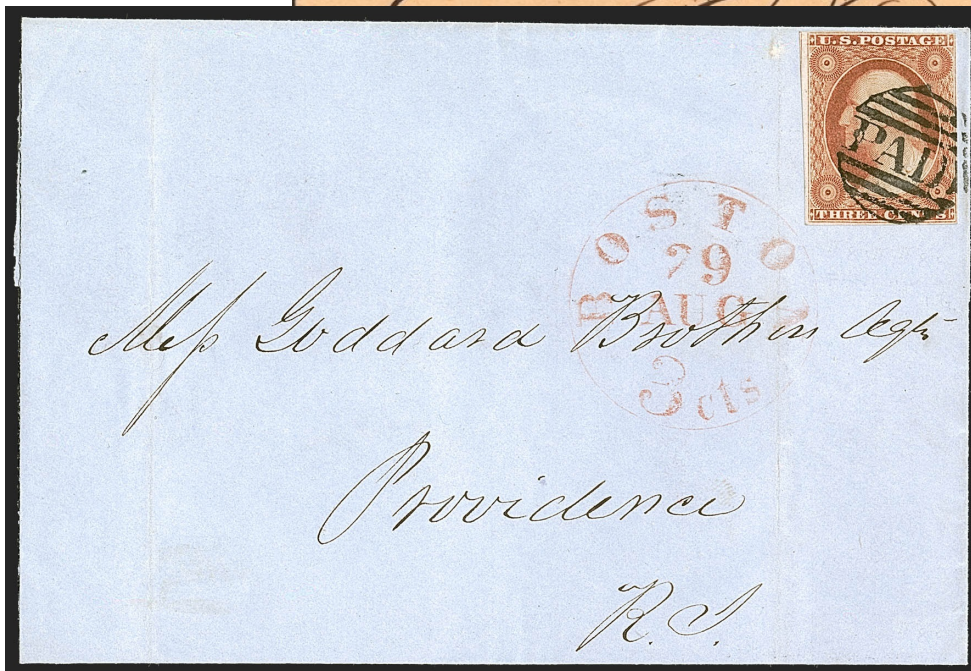 U.S. POSTAGE
PAID
THREE CENTS
BOSTON
29
AUG
3 cts
Mess Goddard Brothers Agts
Providence
R. I.